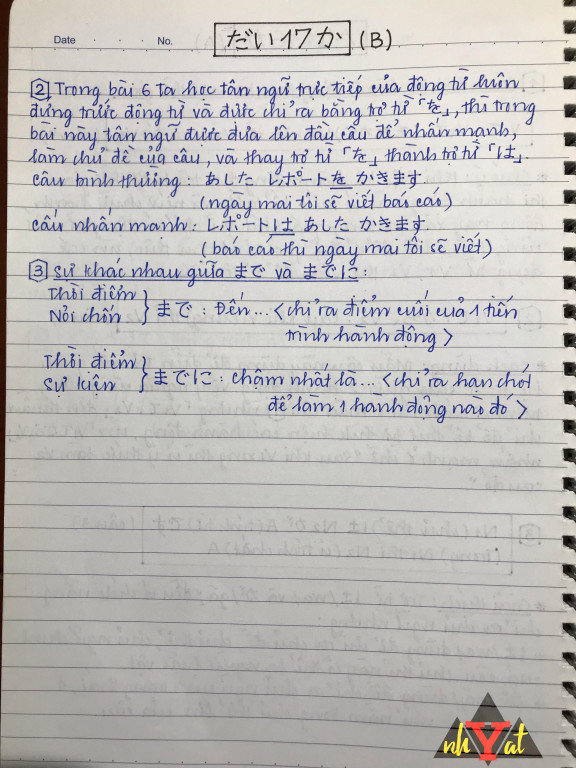 Date . . . No.
だい17か (B)
2 Trong bài 6 ta học tân ngữ trực tiếp của động từ luôn
đứng trước động từ và được chỉ ra bằng trợ từ 「を」, thì trong
bài này tân ngữ được đưa lên đầu câu để nhấn mạnh,
làm chủ đề của câu, và thay trợ từ 「を」 thành trợ từ 「は」.
câu bình thường : あした レポートを かきます
(ngày mai tôi sẽ viết báo cáo)
câu nhấn mạnh : レポートは あした かきます
(báo cáo thì ngày mai tôi sẽ viết)
3 Sự khác nhau giữa まで và までに :
Thời điểm
Nơi chốn } まで : Đến... <chỉ ra điểm cuối của 1 tiến
trình hành động>
Thời điểm
Sự kiện } までに : chậm nhất là... <chỉ ra hạn chót
để làm 1 hành động nào đó>
nhYat